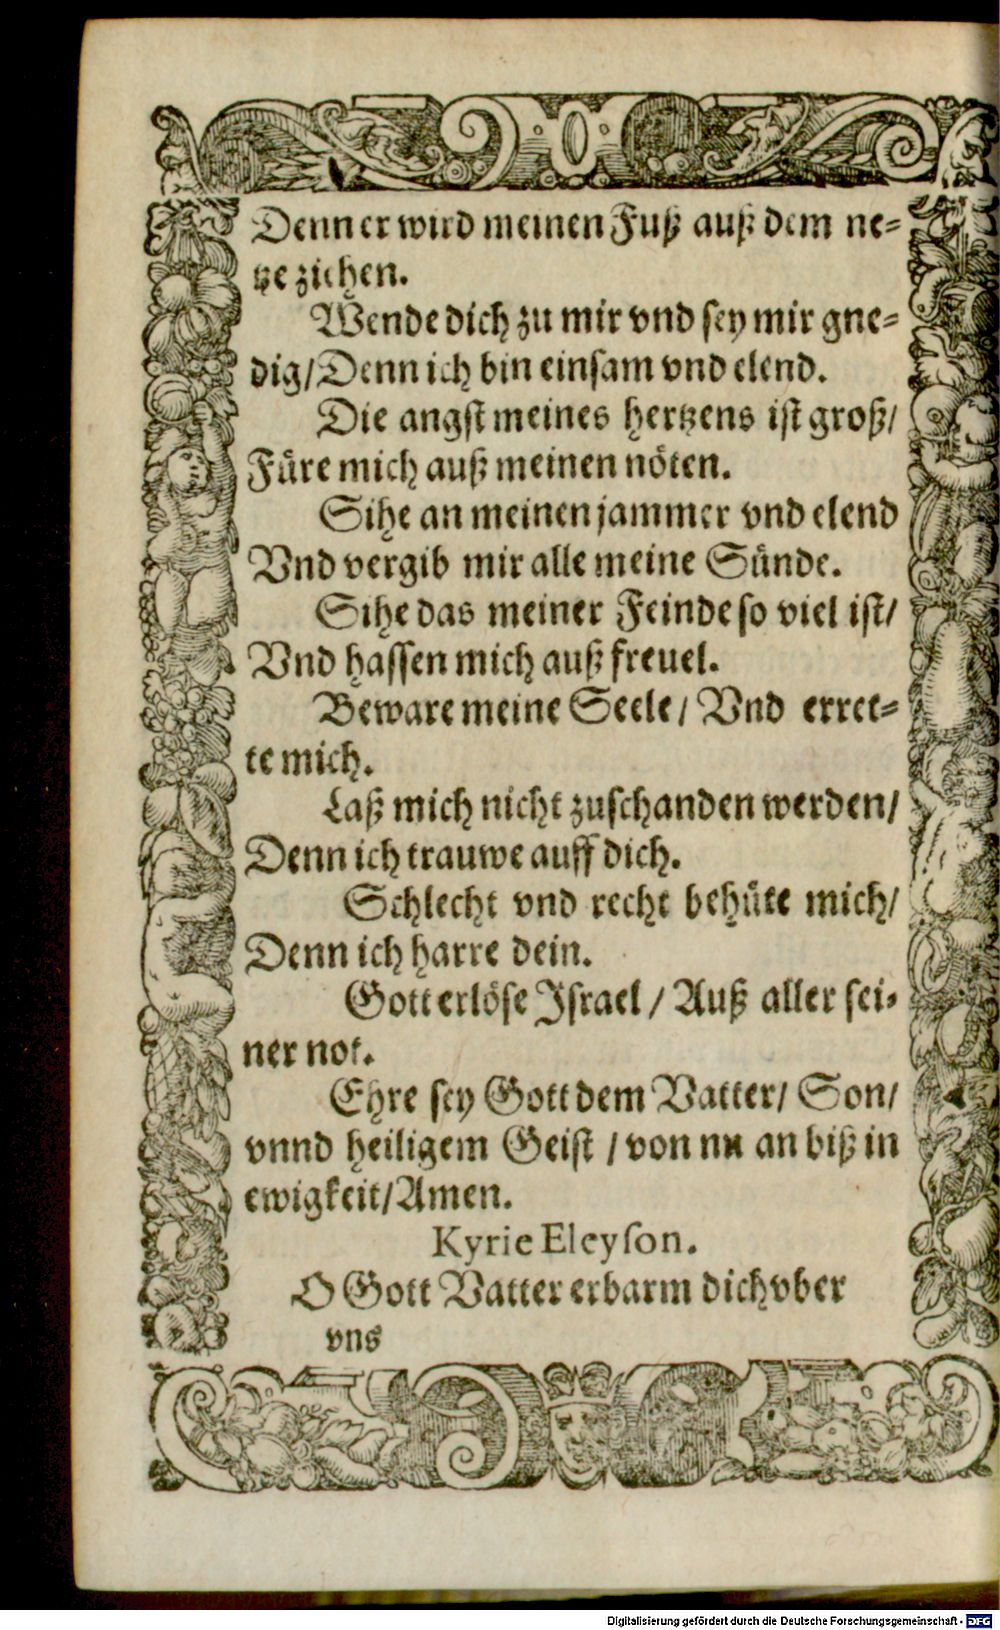 Denn er wird meinen Fuß auß dem ne-
tze ziehen.
Wende dich zu mir vnd sey mir gne-
dig/Denn ich bin einsam vnd elend.
Die angst meines hertzens ist groß/
Füre mich auß meinen nöten.
Sihe an meinen jammer vnd elend
Vnd vergib mir alle meine Sünde.
Sihe das meiner Feinde so viel ist/
Vnd hassen mich auß freuel.
Beware meine Seele / Vnd erret-
te mich.
Laß mich nicht zuschanden werden/
Denn ich trauwe auff dich.
Schlecht vnd recht behüte mich/
Denn ich harre dein.
Gott erlöse Israel / Auß aller sei-
ner not.
Ehre sey Gott dem Vatter/ Son/
vnnd heiligem Geist / von nu an biß in
ewigkeit/Amen.
Kyrie Eleyson.
O Gott Vatter erbarm dich vber
vns
Digitalisierung gefördert durch die Deutsche Forschungsgemeinschaft - DFG